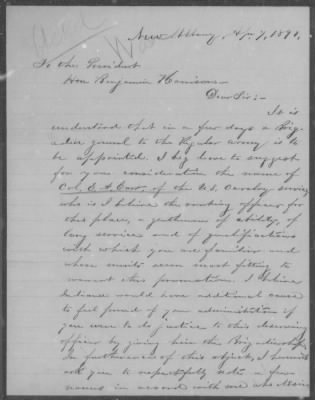 New Albany Apr 7, 1890.
To the President
Hon Benjamin Harrison -
Dear Sir: -
It is
understood that in a few days a Brig-
adier general to the Regular army is to
be appointed. I beg leave to suggest
for your consideration the name of
Col. E. A. Carr, of the U.S. Cavalry service
who is I believe the ranking officer for
this place, a gentleman of ability, of
long service and of qualifications
with which you are familiar and
whose merits seem most fitting to
warrant this promotion. I believe
Indiana would have additional cause
to feel proud of your administration if
you were to do justice to this deserving
officer by giving him the Brigadiership.
In furtherance of this object, I
ask you to respectfully note a few
names in accord with me who desire